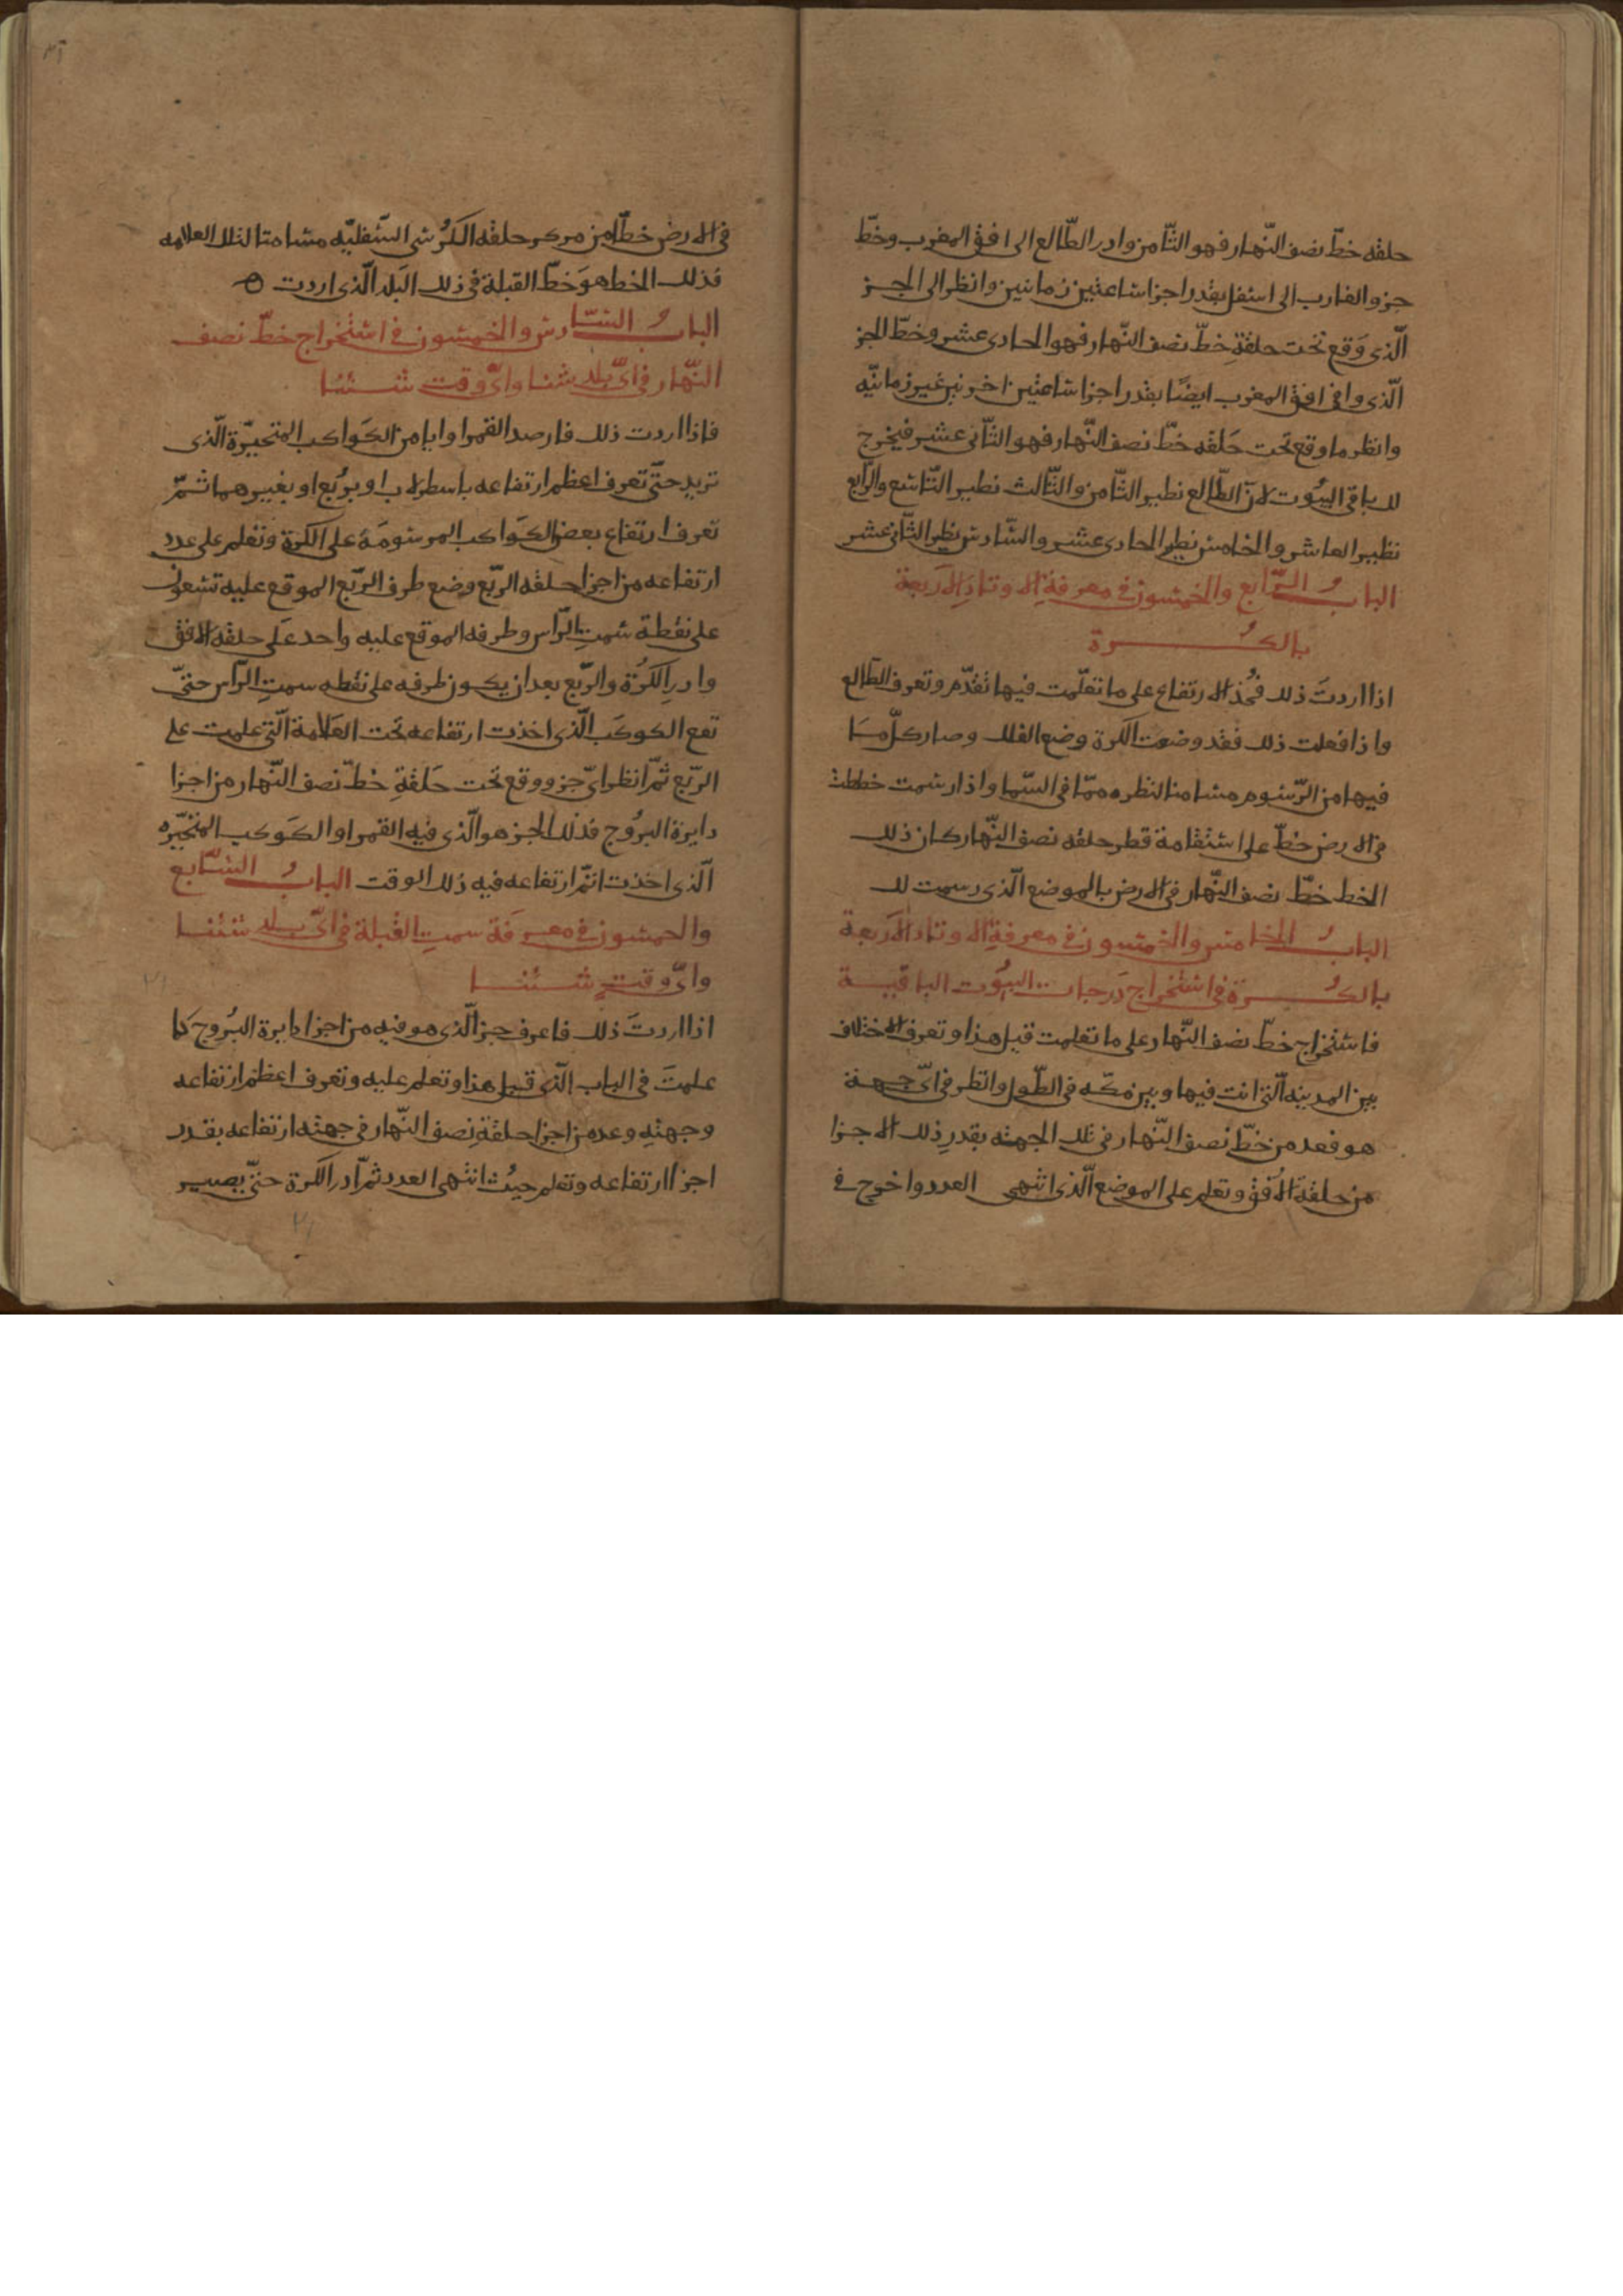 حلقه خطّ نصف النّهار فهو الثّامن وادر الطّالع الى افق المغرب وخطّ
جزو الغارب الى اسفل بقدر اجزا ساعتين زمانيين وانظر الى الجــز
الّذى وَقع تحت حلقةِ خطّ نصف النّهار فهو الحادى عشر وخطّ الجز
الّذى وافى افق المغرب ايضًا بقدر اجزا ساعتين اخريين غير زمانيّه
وانظر ما وقع تحت حَلقه خطّ نصف النّهار فهو الثّانى عشر فيخرج
لك باقى البيُوت لانّ الطّالع نظير الثّامن والثّالث نظير التّاسع والرّابع
نظير العاشر والخامس نظير الحادى عشر والسّادس نظير الثّانى عشر
البابُ الرّابع والخمسون فى معرفةِ الاوتادِ الاَربعة
بالكُـــرة
اذا اردتَ ذلك فخُذ الارتفاع على ما تعلّمت فيها تقدّم وتعرف الطّالع
واذا فعلت ذلك فقد وضعت الكرة وضع الفلك وصار كلّ مـَا
فيها من الرّسوم مسامتا لنظره ممّا فى السّما واذا رسمت خططت
فى الارض خطّ على استقامة قطر حلقه نصف النّهار كان ذلك
الخط خطّ نصف النّهار فى الارض بالموضع الّذى رسمت لك
البابُ الخامس والخمسون فى معرفةِ الاوتاد الاَربعة
بالكُـــرة فى استخراج دَرجات البيُوت الباقيـة
فاستخراج خطّ نصف النّهار على ما تعلمت قبل هذا وتعرف الاختلاف
بين المدينه الّتى انت فيها وبين مكّه فى الطّول وانظر فى اىّ جهــة
هو فعد من خطّ نصف النّهار فى تلك الجهته بقدرِ ذلك الاجـزا
من حلقة الاُفق وتعلم على الموضع الّذى انتهى العدد واخرج فى
فى الارض خطّا من مركز حلقه الكُرسى السّفليّه مسامتا لتلك العلامه
فذلك الخط هوَ خطّ القبلة فى ذلك البَلد الّذى اردت ه
البابُ السّادس والخمسون فى استخراج خطّ نصف
النّهار فى اىّ بلد شئنا واىّ وقت شــئنا
فاذا اردت ذلك فارصد القمر او ايا من الكَواكب المتحيّرة الّذى
تريد حتّى تعرف اعظم ارتفاعه باسطرلاب او برُبع او بغيرهما ثمّ
تعرف ارتفاع بعض الكوَاكب المرسُومَة على الكرة وتعلم على عدد
ارتفاعه من اجزا حلقه الرّبع وضع طرف الرّبع الموقع عليه تسعون
على نقطة سمتِ الرّاس وطرفه الموقع عليه واحد عَلى حلقة الافق
وادرِ الكرُة والرّبع بعد ان يكون طرفه على نقطه سمتِ الرّاس حتىّ
تقع الكوكَب الّذى اخذت ارتفاعه تحت العَلامة الّتى علمت على
الرّبع ثمّ انظر اىّ جزو وقع تحت حَلقةِ خطّ نصف النّهار من اجزا
دايرة البرُوج فذلك الجز هو الّذى فيه القمر او الكَوكب المتحيّره
الّذى اخذت انتم ارتفاعه فيه ذلك الوقت البابُ السّابع
والخمسون فى معرفَة سمتِ القبلة فى اىّ بـلد شئنـا
واىّ وقتٍ شــئنــا
اذا اردتَ ذلك فاعرف جز الّذى هو فيه من اجزا دايرة البرُوج كما
علمتَ فى الباب الّذى قبل هذا وتعلم عليه وتعرف اعظم ارتفاعه
وجهتِه وعد من اجزا حلقةِ نصف النّهار فى جهته ارتفاعه بقدر
اجزا ارتفاعه وتعلم حيثُ انتهى العدد ثمّ ادر الكرة حتىّ يصيـر